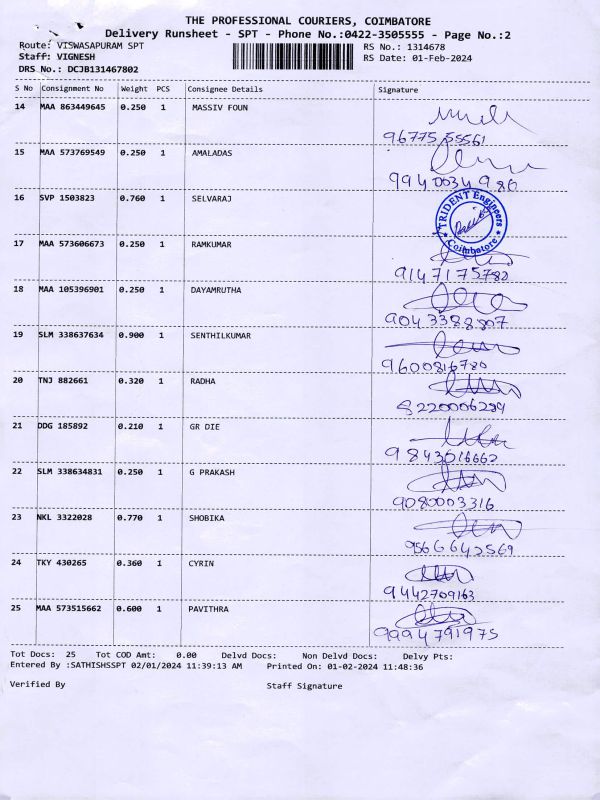 THE PROFESSIONAL COURIERS, COIMBATORE
Delivery Runsheet - SPT - Phone No.:0422-3505555 - Page No.:2
Route: VISWASAPURAM SPT RS No.: 1314678
Staff: VIGNESH RS Date: 01-Feb-2024
DRS No.: DCJB131467802
S No Consignment No Weight PCS Consignee Details Signature
14 MAA 863449645 0.250 1 MASSIV FOUN
96775 55561
15 MAA 573769549 0.250 1 AMALADAS
9940034980
16 SVP 1503823 0.760 1 SELVARAJ
TRIDENT Engineers
Coimbatore
17 MAA 573606673 0.250 1 RAMKUMAR
9147175782
18 MAA 105396901 0.250 1 DAYAMRUTHA
9043388807
19 SLM 338637634 0.900 1 SENTHILKUMAR
9600816780
20 TNJ 882661 0.320 1 RADHA
8220006229
21 DDG 185892 0.210 1 GR DIE
9843016662
22 SLM 338634831 0.250 1 G PRAKASH
9080003316
23 NKL 3322028 0.770 1 SHOBIKA
9566642569
24 TKY 430265 0.360 1 CYRIN
9442709163
25 MAA 573515662 0.600 1 PAVITHRA
9994791975
Tot Docs: 25 Tot COD Amt: 0.00 Delvd Docs: Non Delvd Docs: Delvy Pts:
Entered By :SATHISHSSPT 02/01/2024 11:39:13 AM Printed On: 01-02-2024 11:48:36
Verified By Staff Signature